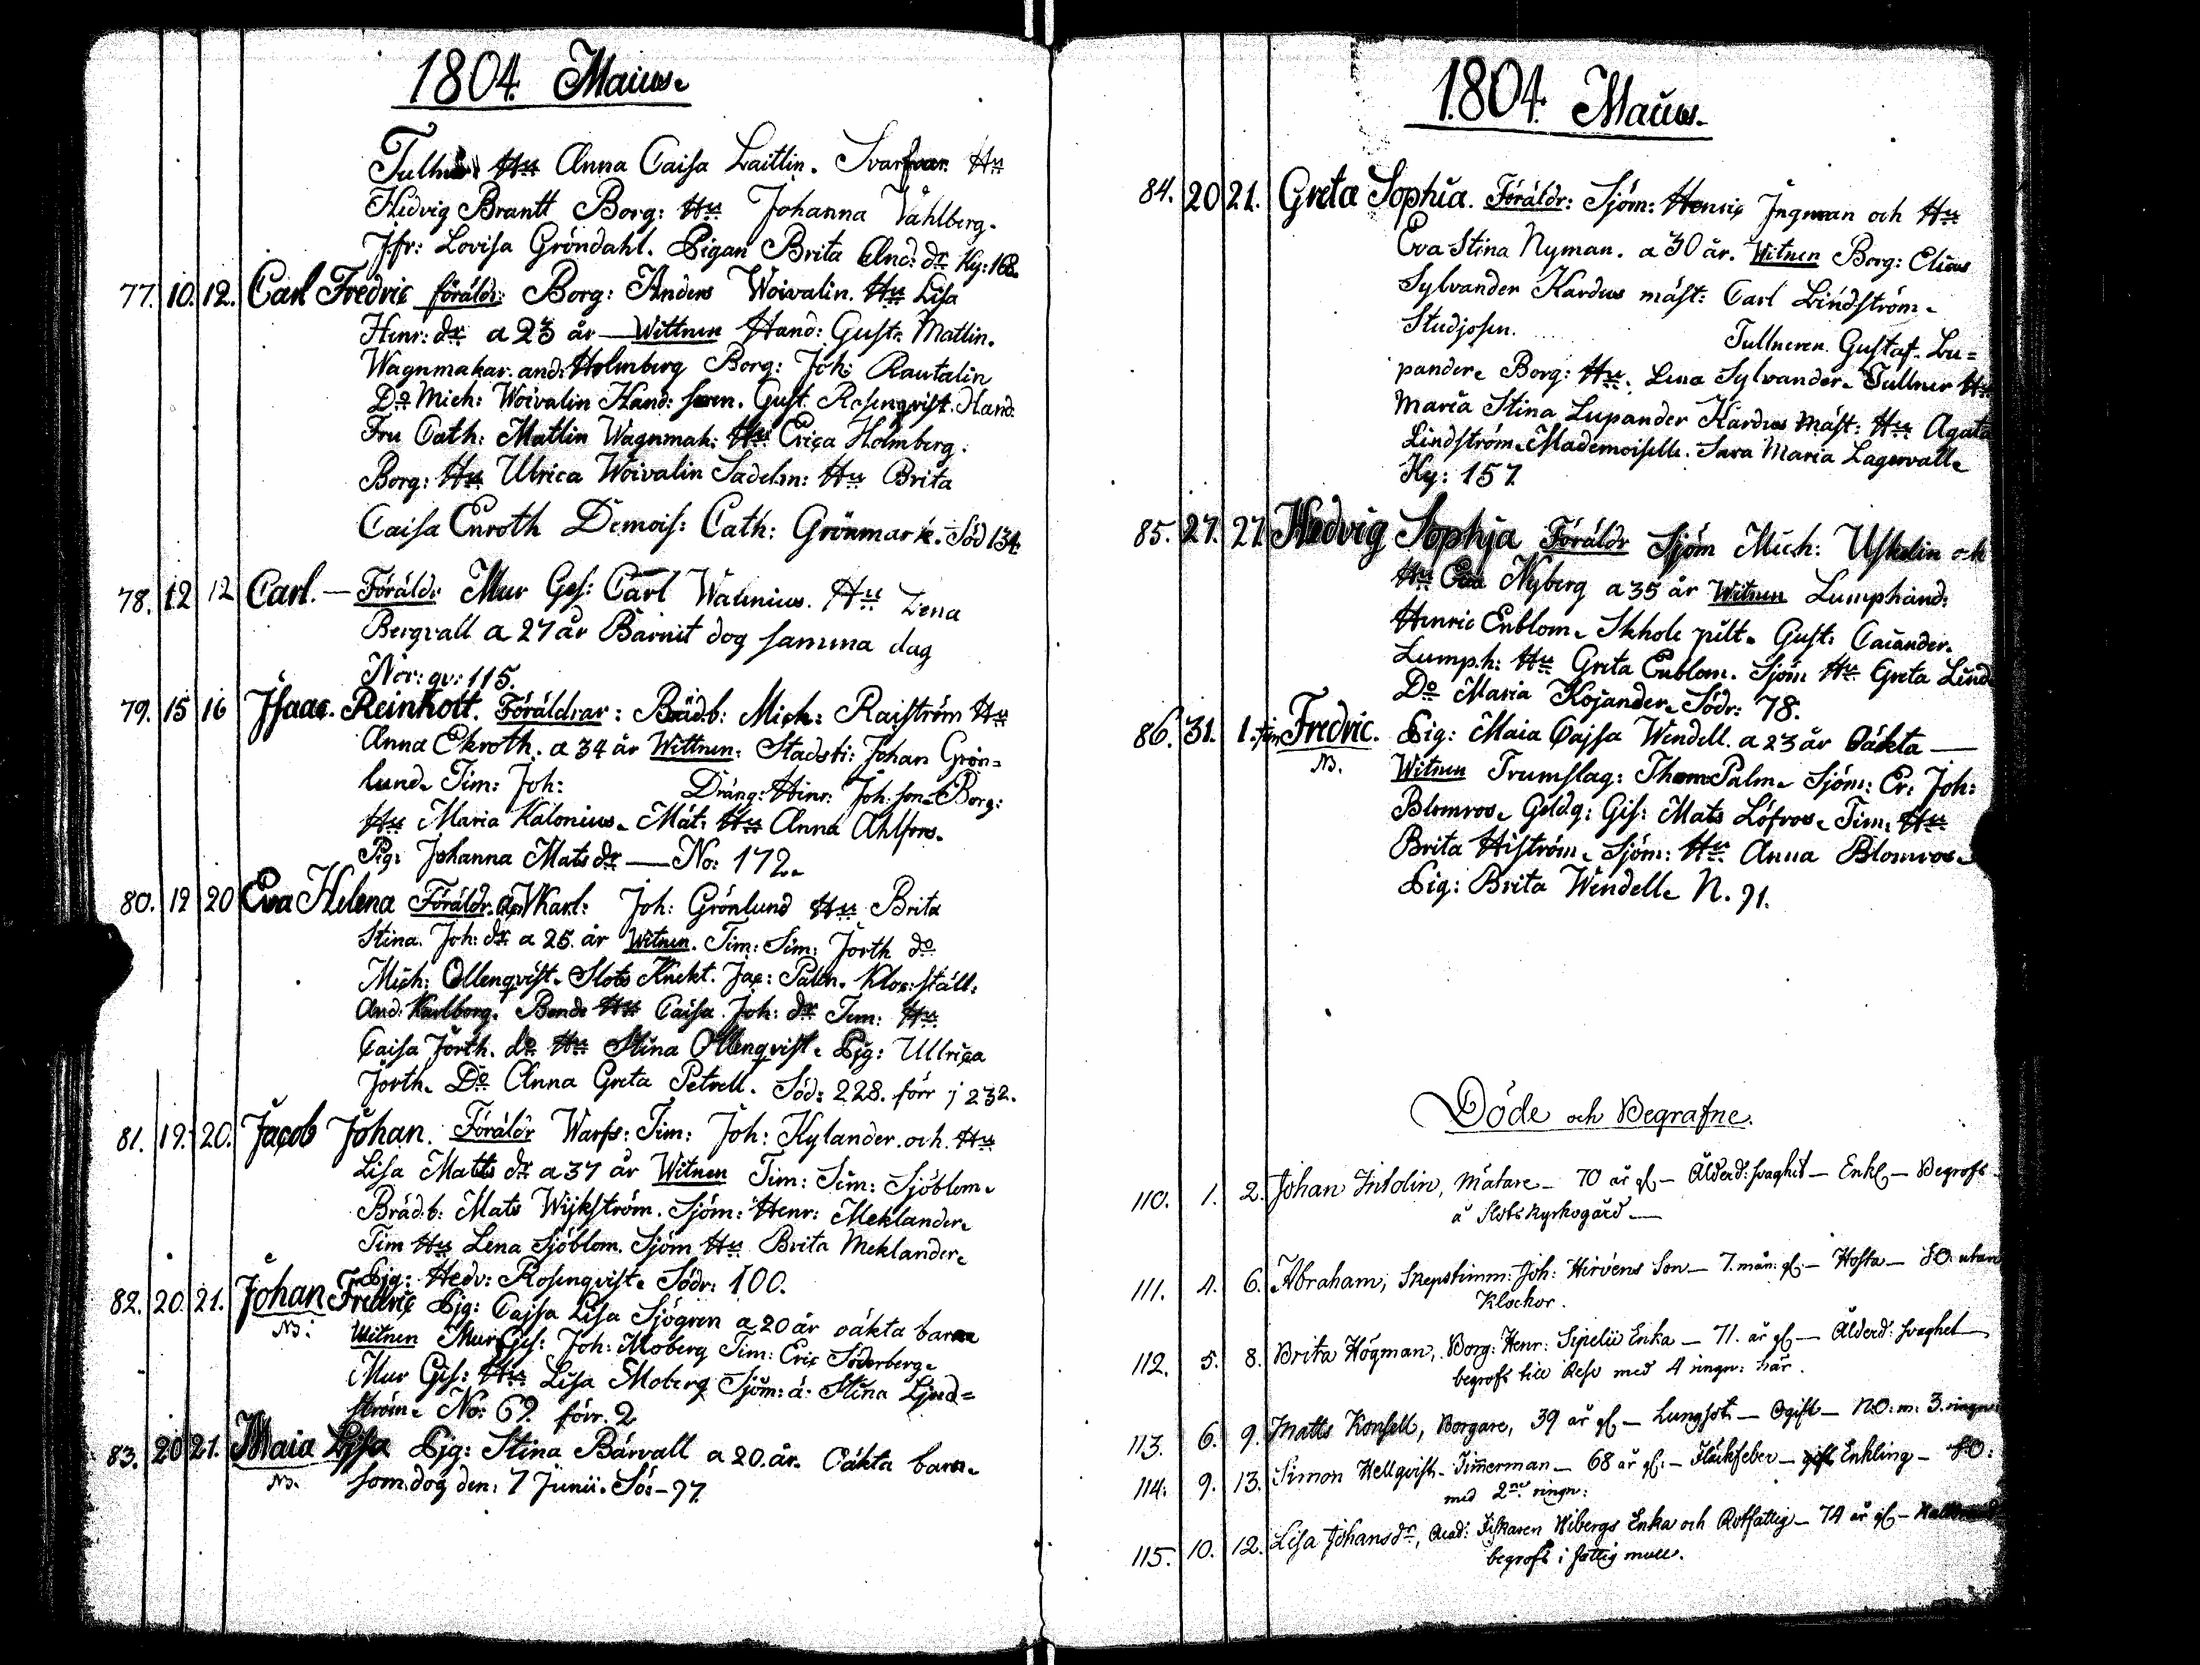 1804. Maius.
Tullner Hu Anna Caisa Laitlin. Svarfvar Hu
Hedvig Brantt Borg: Hu Johanna Vahlberg.
Jfr: Lovisa Gröndahl. Pigan Brita And: dr Ky: 168.
77. 10. 12. Carl Fredric föräldr: Borg: Anders Woivalin. Hu Lisa
Hinr: dr a 23 år — Wittnen Hand: Gust: Matlin.
Wagnmakar. and: Holmberg Borg: Joh: Rautalin
Do Mich: Woivalin Hand: sven. Gust. Rosenqvist. Hand:
Fru Cath: Matlin Wagnmak: Hu Erica Holmberg.
Borg: Hu Ulrica Woivalin Sadelm: Hu Brita
Caisa Enroth Demois: Cath: Grönmark. Söd 134.
78. 12 12 Carl. — Föräldr Mur Ges: Carl Walinius. Hu Lena
Bergvall a 27 år Barnit dog samma dag
Nor: qv: 115.
79. 15 16 Isaac. Reinholt. Föräldrar: Brädb: Mich: Raiström Hu
Anna Ekroth. a 34 år Wittnen: Stadsti: Johan Grön=
lund. Tim: Joh: Dräng: Hinr: Joh: son. Borg:
Hu Maria Kalonius. Mät: Hu Anna Ahlfors.
Pig: Johanna Mats dr — No: 172.
80. 19 20 Eva Helena Föräldr. Karl: Joh: Grönlund Hu Brita
Stina. Joh: dr a 25. år Witnen. Tim: Sim: Jorth do
Mich: Ollenqvist. Slots Knekt. Jac: Palen. Kloc: ställ:
And: Karlborg. Bonde Hu Caisa. Joh: dr Tim: Hu
Caisa Jorth. do Hu Stina Ollenqvist. Pig: Ullrica
Jorth. Do Anna Greta Petrell. Söd: 228. förr i 232.
81. 19. 20. Jacob Johan. Föräldr Warfs: Tim: Joh: Kylander. och. Hu
Lisa Matts dr a 37 år Witnen Tim: Sim: Sjöblom.
Brädb: Mats Wijkström. Sjöm: Henr: Meklander.
Tim Hu Lena Sjöblom. Sjöm Hu Brita Meklander.
Pig: Hedv: Rosenqvist. Södr: 100.
82. 20. 21. Johan Fredric Pig: Cajsa Lisa Sjögren a 20 år oäkta barn
NB: Witnen Mur Ges: Joh: Moberg Tim: Eric Söderberg.
Mur Ges: Hu Lisa Moberg Sjöm: a: Stina Lind=
ström. No: 69. förr. 2
83. 20 21. Maia Lisa Pig: Stina Bärvall a 20. år. Oäkta barn.
NB. som dog den: 7 Junii. Sö: - 97.
1804. Maius.
84. 20 21. Greta Sophia. Föräldr: Sjöm: Henric Ingman och Hu
Eva Stina Nyman. a 30 år. Witnen Borg: Elias
Sylvander Kardus mäst: Carl Lindström.
Studjosen. Tullneren. Gustaf. Lu=
pander. Borg: Hu. Lena Sylvander. Tullner Hu
Maria Stina Lupander Kardus mäst: Hu Agata
Lindström. Mademoiselle. Sara Maria Lagervall.
Ky: 157
85. 27. 27. Hedvig Sophia Föräldr Sjöm Mich: Uskelin och
Hu Eva Nyberg a 35 år Witnen Lumphand:
Henric Enblom. Skhole pilt. Gust: Caiander.
Lumph: Hu Greta Enblom. Sjöm Hu Greta Lind.
Do Maria Kojander. Södr: 78.
86. 31. 1. Jun Fredric. Pig: Maia Cajsa Wendell. a 23 år Oäkta —
NB. Witnen Trumslag: Thom Palm. Sjöm: Er: Joh:
Blomros. Guldq: Ges: Mats Löfros. Tim: Hu
Brita Hiström. Sjöm: Hu Anna Blomros.
Pig: Brita Wendell. N. 91.
Döde och Begrafne.
110. 1. 2. Johan Fritolin, Mätare — 70 år gl. — Ålderd: svaghet — Enkl. — Begrofs
å Slots kyrkogård —
111. 4. 6. Abraham, Skepstimm: Joh: Hirvéns Son — 7. mån: gl. — Hosta — SO. utan
Klockor.
112. 5. 8. Brita Högman, Borg: Henr: Sipelii Enka — 71. år gl. — Ålderd: svaghet —
begrofs till Reso med 4 ringn: här.
113. 6. 9. Matts Konsell, Borgare, 39 år gl. — Lungsot — Ogift — NO. m: 3. ringn:
114. 9. 13. Simon Hellqvist. Timmerman — 68 år gl. — Fläckfeber — Enkling — SO:
med 2ne ringn:
115. 10. 12. Lisa Johansdr, Acad: Fiskaren Wibergs Enka och Rotfattig — 74 år gl. —
begrofs i fattig mull.